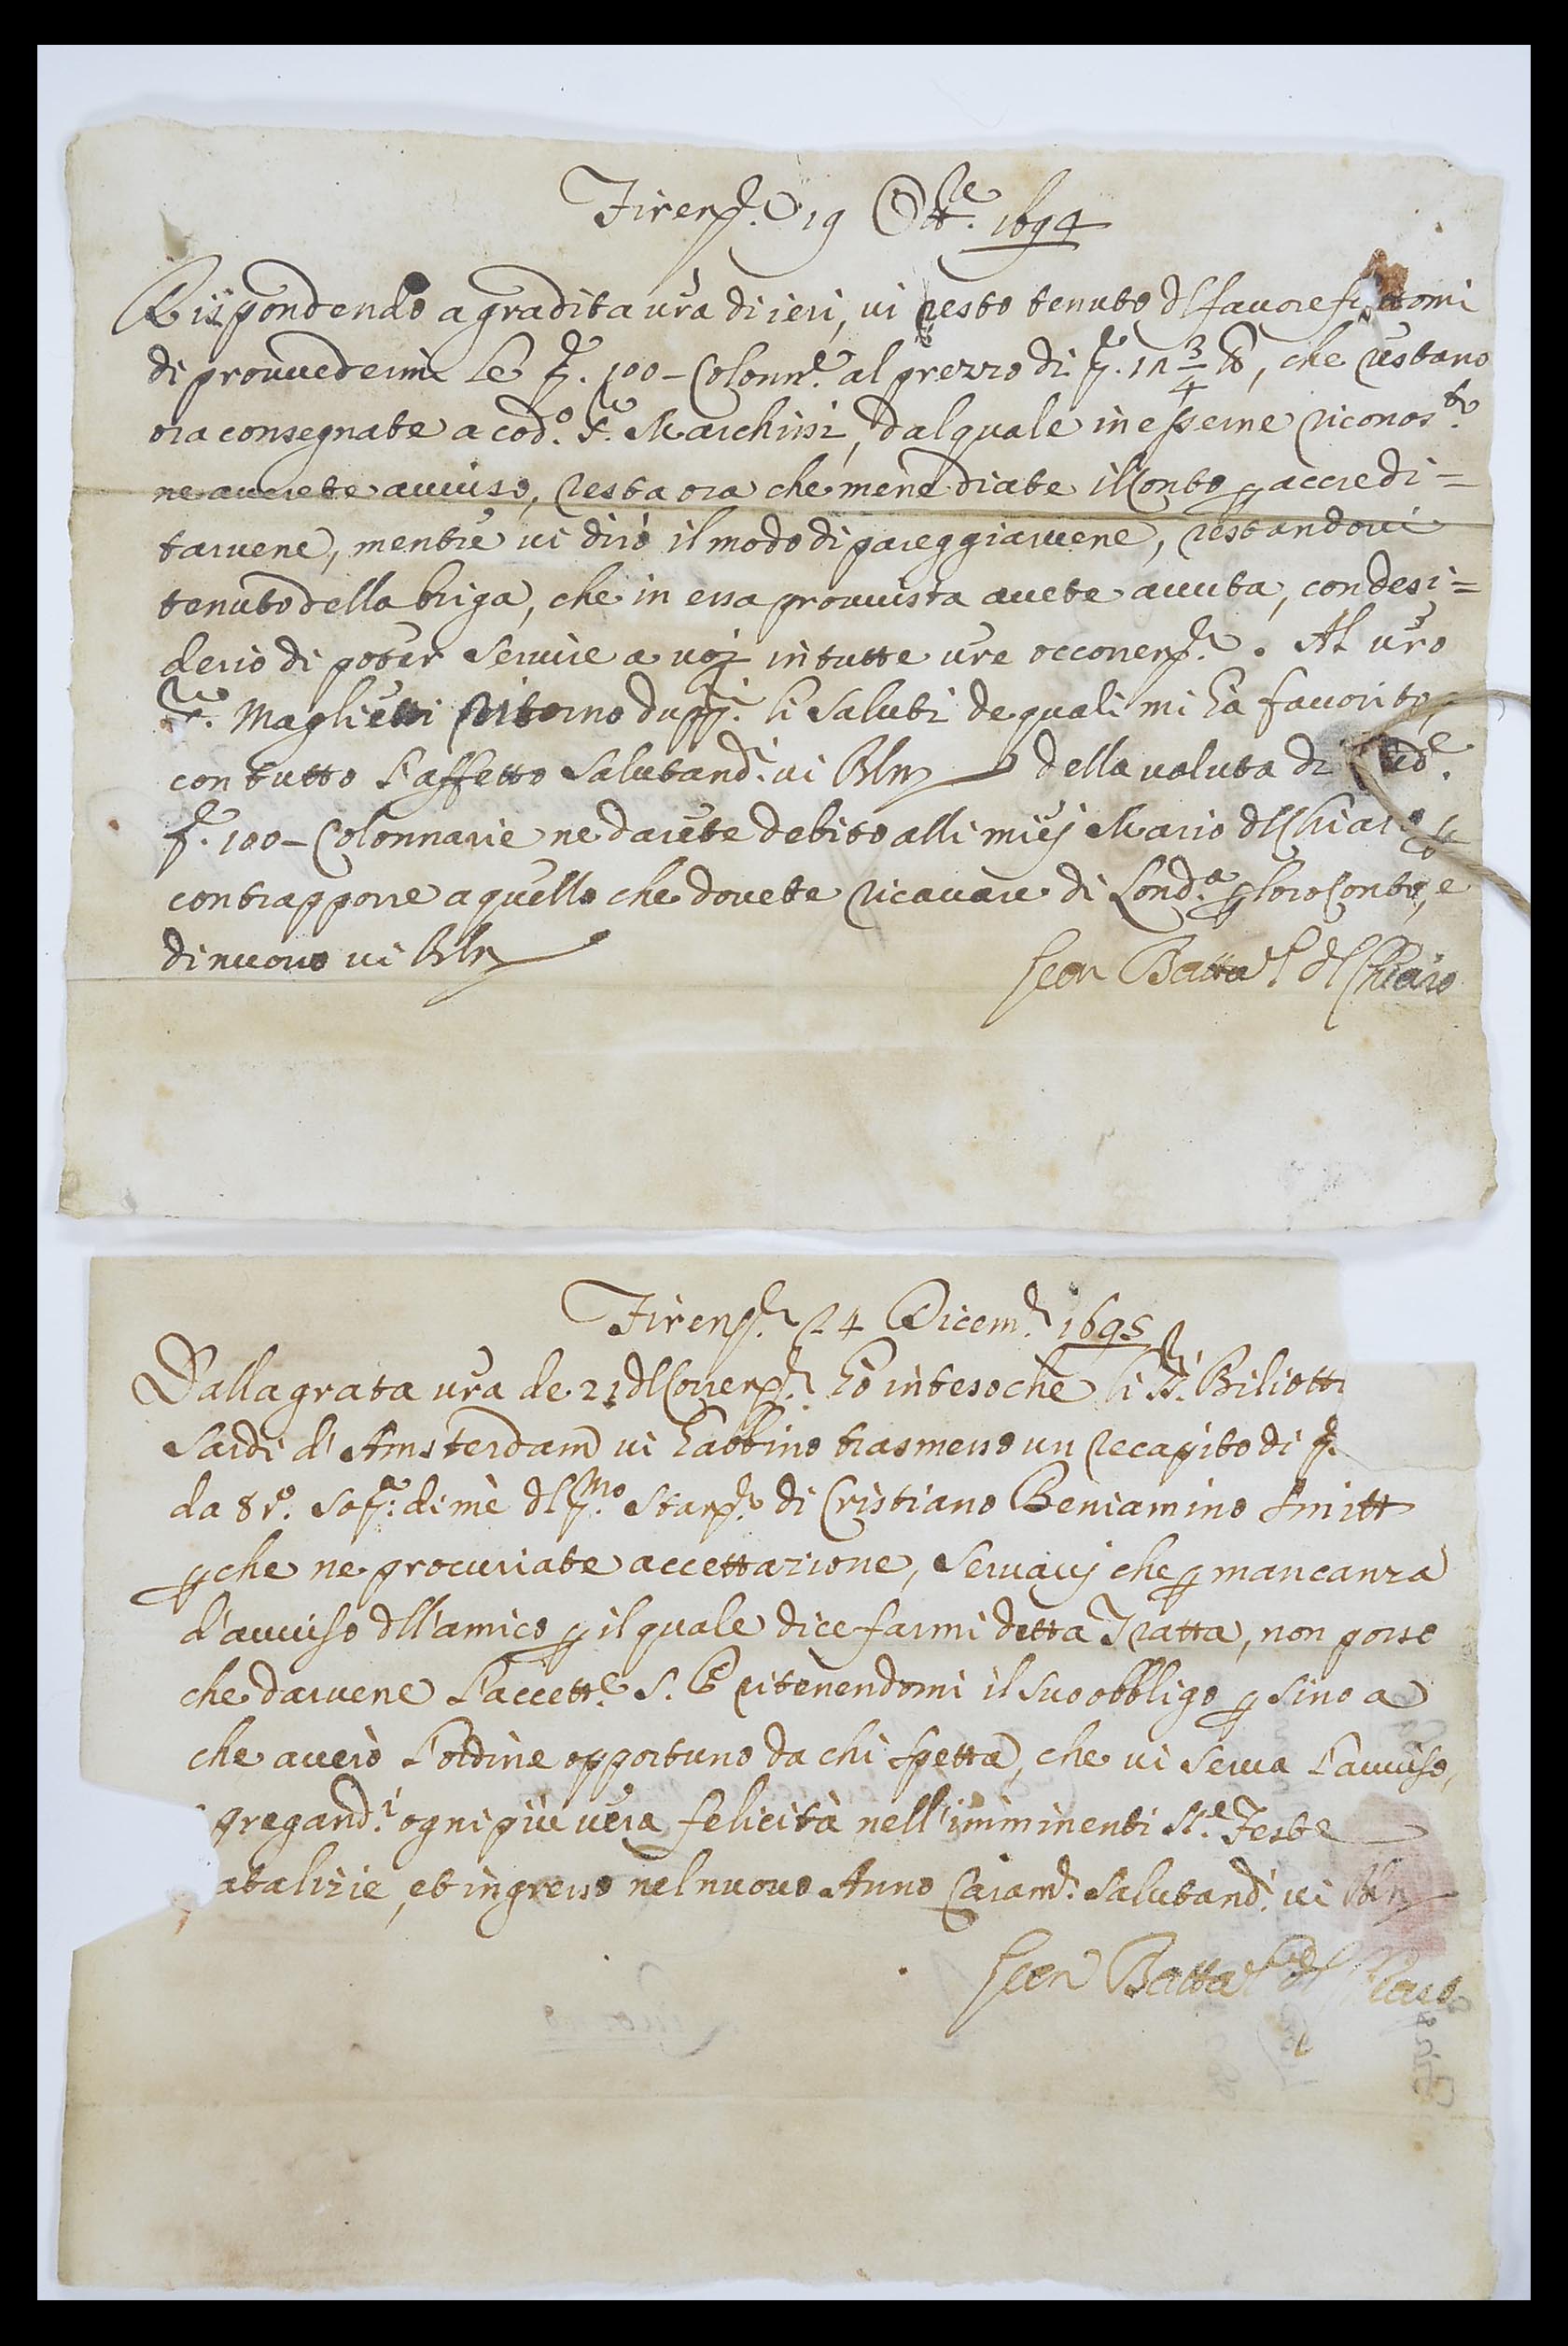 Firenze 19 Ottre. 1694
Rispondendo a gradita vra di ieri, vi resto tenuto dl favore fattomi
di provvedermi le 100 - Colonne. al prezzo di 3/4, che restano
ora consegnate a cod.o Sr. Marchisi, dal quale in esserne riconosto.
ne averete avviso, resta ora che mene diate il Conto p accredi=
tarvene, mentre vi dirò il modo di pareggiarvene, restandovi
tenuto della briga, che in essa provvista avete avuta, con desi=
derio di poter servire a voj in tutte vre occorenze. Al vro
Sre. Maglietti ritorno duppi. li saluti de quali mi hà favorito, e
con tutto l'affetto salutandi. vi Blm della valuta di
100 - Colonnarie ne darete debito alli miej Mario dl Chiaro p
contrapporre a quello che dovete ricavare di Lond.a p loro Conto, e
di nuovo vi Blm
Gio Batta dl Chiaro
Firenze 24 Dicemre 1695
Dalla grata vra de 21 dl Corrente hò inteso che li SSri. Biliotti
Sardi d'Amsterdam vi habbino trasmesso un recapito di
da 8 ro. sopa: di mè dl pmo. Stanze di Cristiano Beniamino Smitt
p che ne procuriate accettazione, servavj che p mancanza
d'avviso dll'amico p il quale dice farmi detta Tratta, non posso
che darvene l'accette. S. P ritenendomi il suo obbligo p sino a
che averò l'ordine opportuno da chi spetta, che vi serva l'avviso,
pregandi. ogni più vera felicità nell'imminenti Ste. Feste
atalizie, et ingresso nel nuovo Anno Caramte. salutandi. vi Blm
Gio Batta dl Chiaro